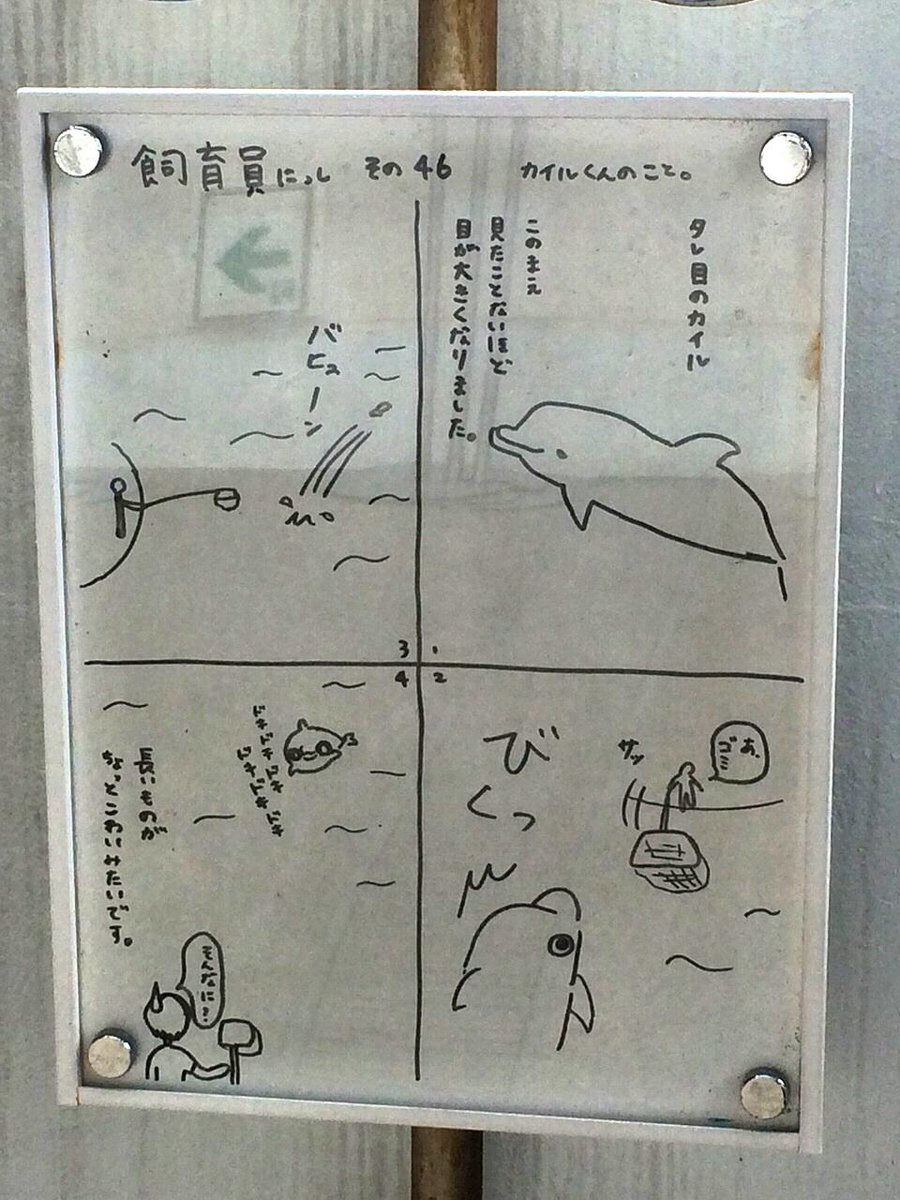 飼育員にっし その46 カイルくんのこと。
タレ目のカイル
このまえ
見たことないほど
目が大きくなりました。
1
あ、
ゴミ
サッ
びくっ
2
バヒューン
3
ドキドキドキドキ
ドキドキドキドキ
長いものが
ちょっとこわいみたいです。
そんなに?
4